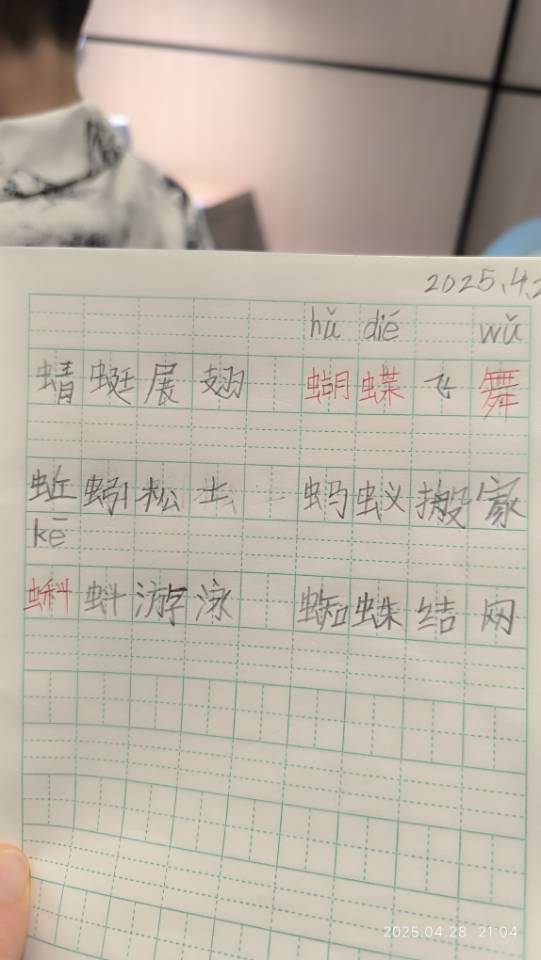 2025.4.2
hǔ dié wǔ
蜻蜓展翅 蝴蝶飞舞
蚯蚓松土 蚂蚁搬家
kē
蝌蚪游泳 蜘蛛结网
2025.04.28 21:04